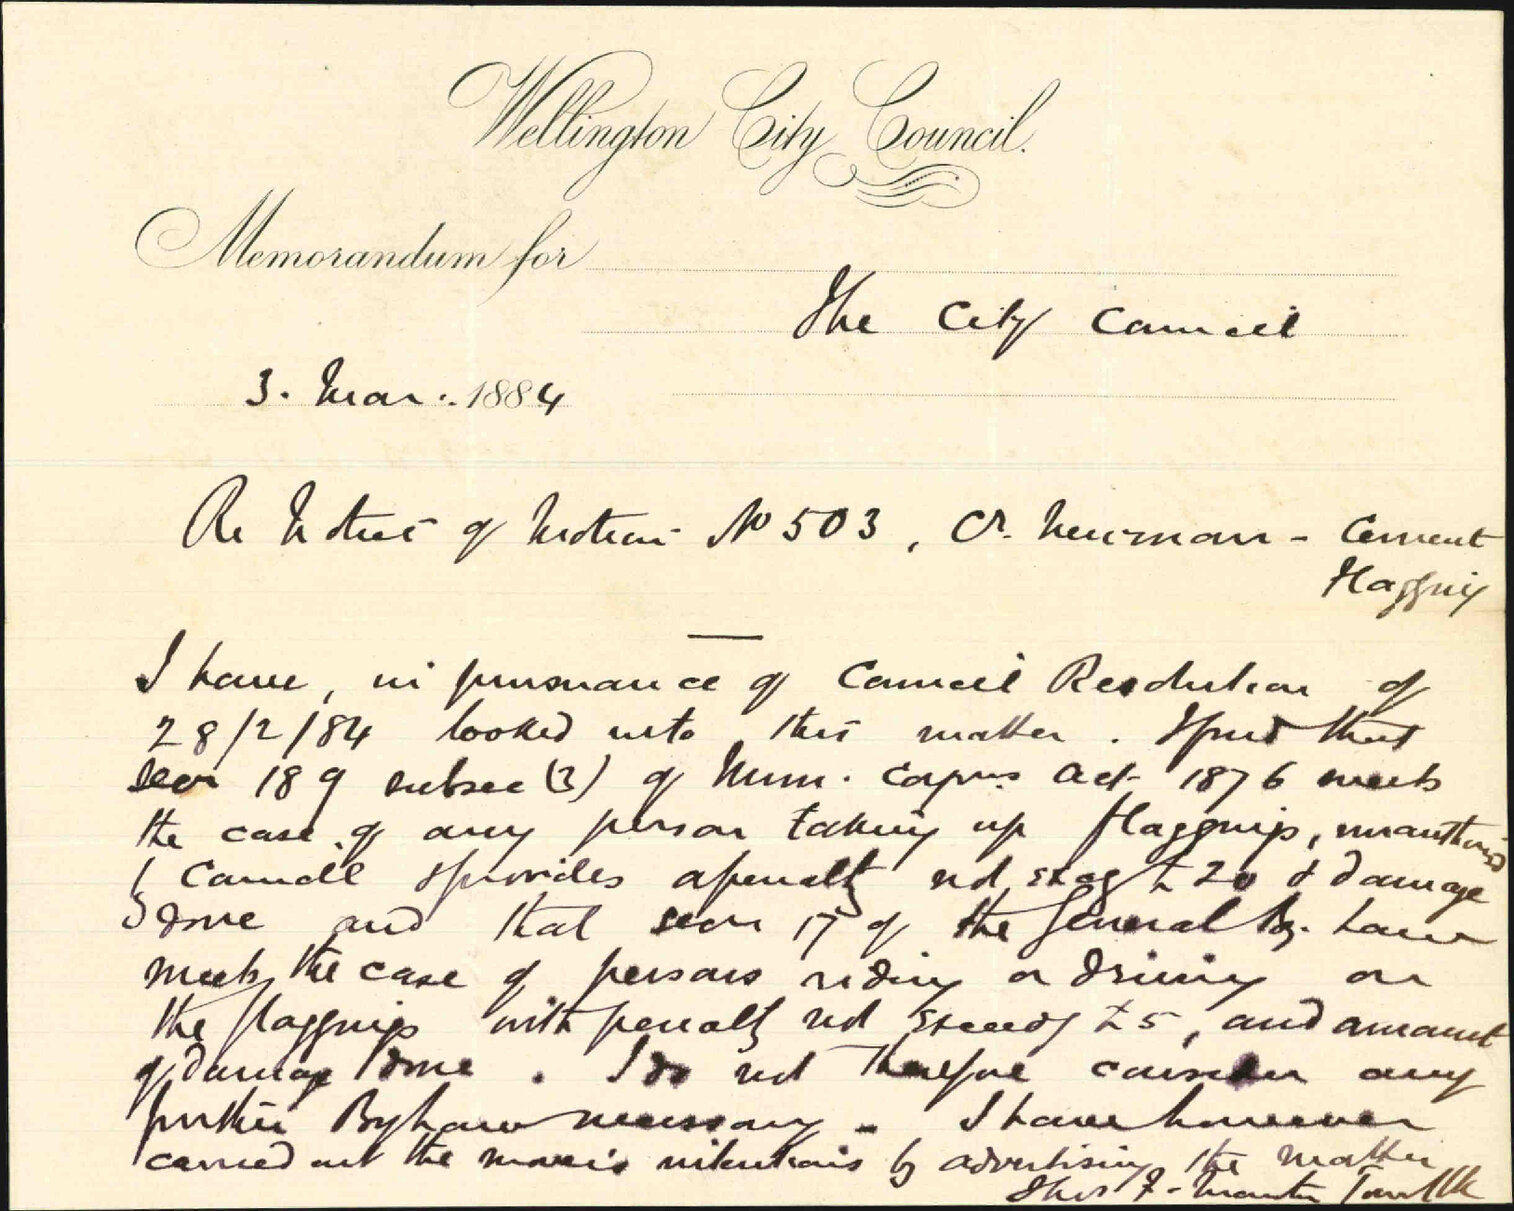 Wellington City Council.
Memorandum for
The City Council
3. Mar. 1884
Re Notice of Motion No 503, Cr. Newman - Cement
Flagging
I have, in pursuance of Council Resolution of
28/2/84 looked into this matter. I find that
secn 189 subsec (3) of Mun. Corpns Act 1876 meets
the case of any person taking up flaggings, unauthorised
by Council & provides a penalty not excdg £20 & damage
done and that secn 17 of the General By-Law
meets the case of persons riding or driving on
the flaggings with penalty not exceedg £5, and amount
of damage done. I do not therefore consider any
further ByLaw necessary - I have however
carried out the mover's intentions by advertising the matter
Thos F. Martin Town Clk